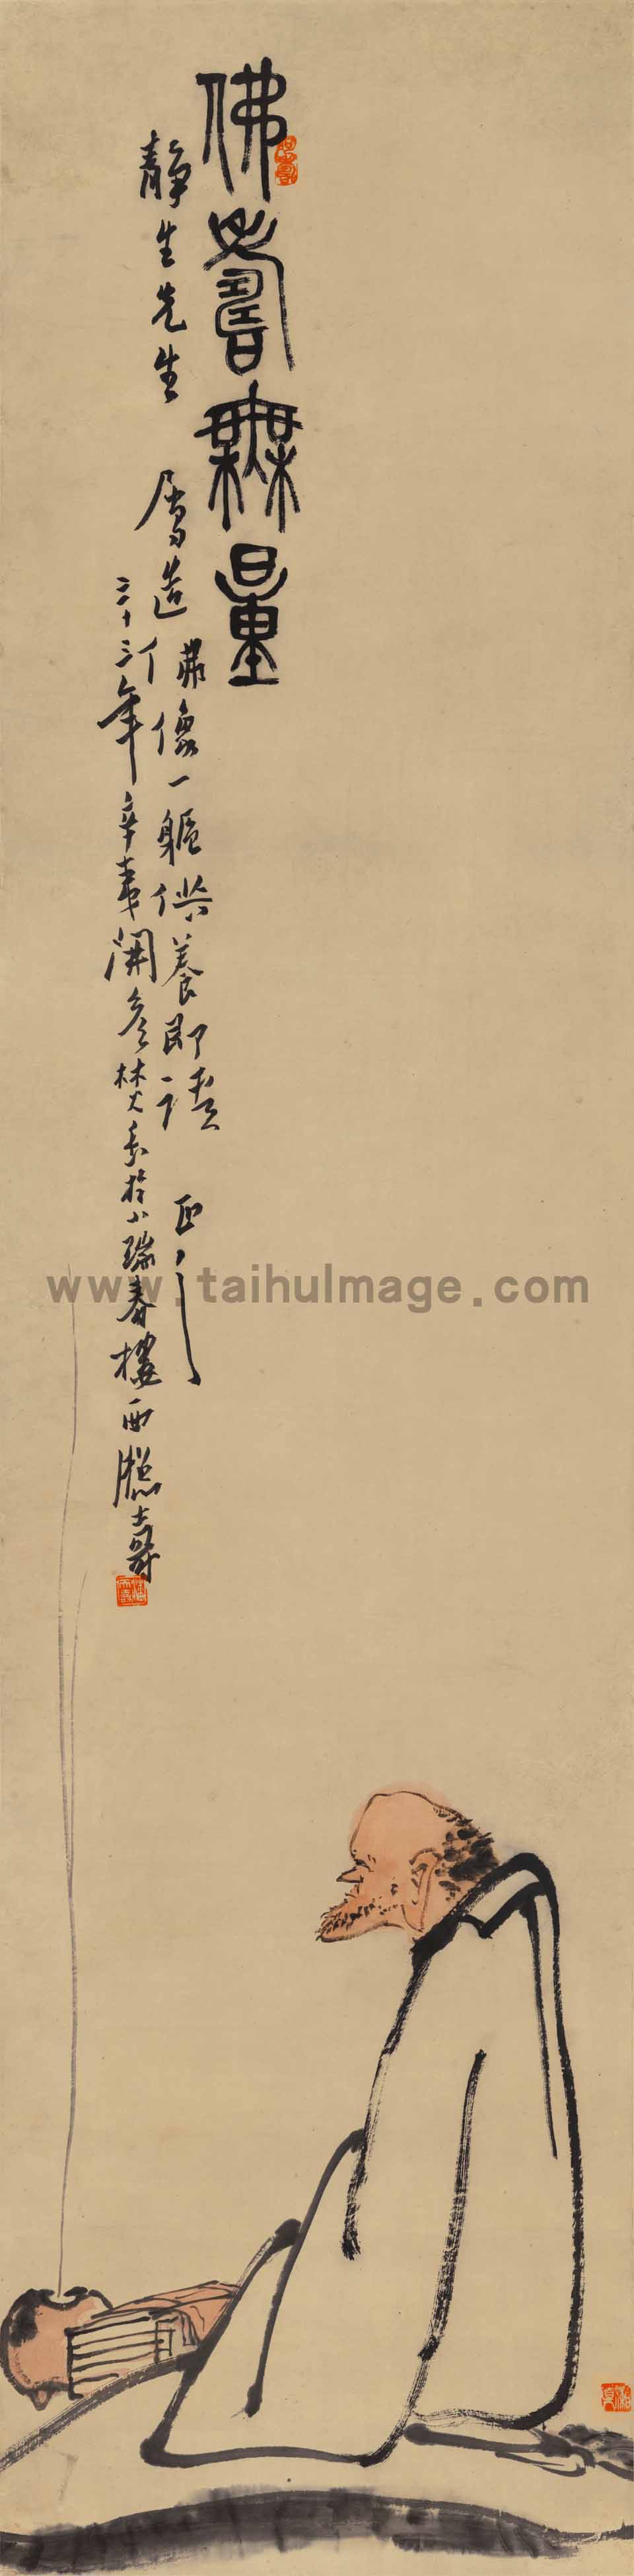 佛壽無量
靜生先生 屬造佛像一軀供養即請 正之
十三年辛夷開焚香於小瑞春樓西牕壽
www.taihuImage.com